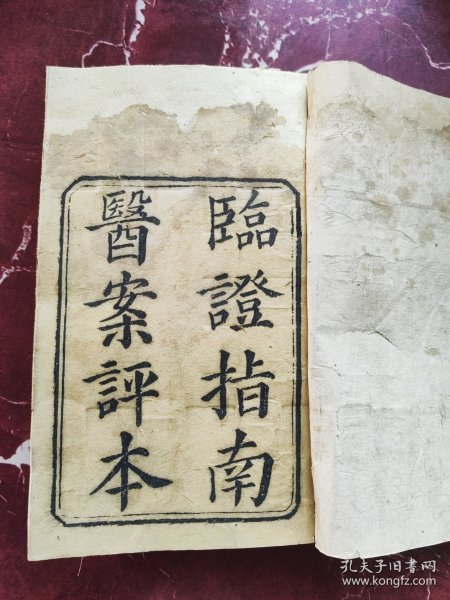 臨證指南
醫案評本
孔夫子旧书网
www.kongfz.com